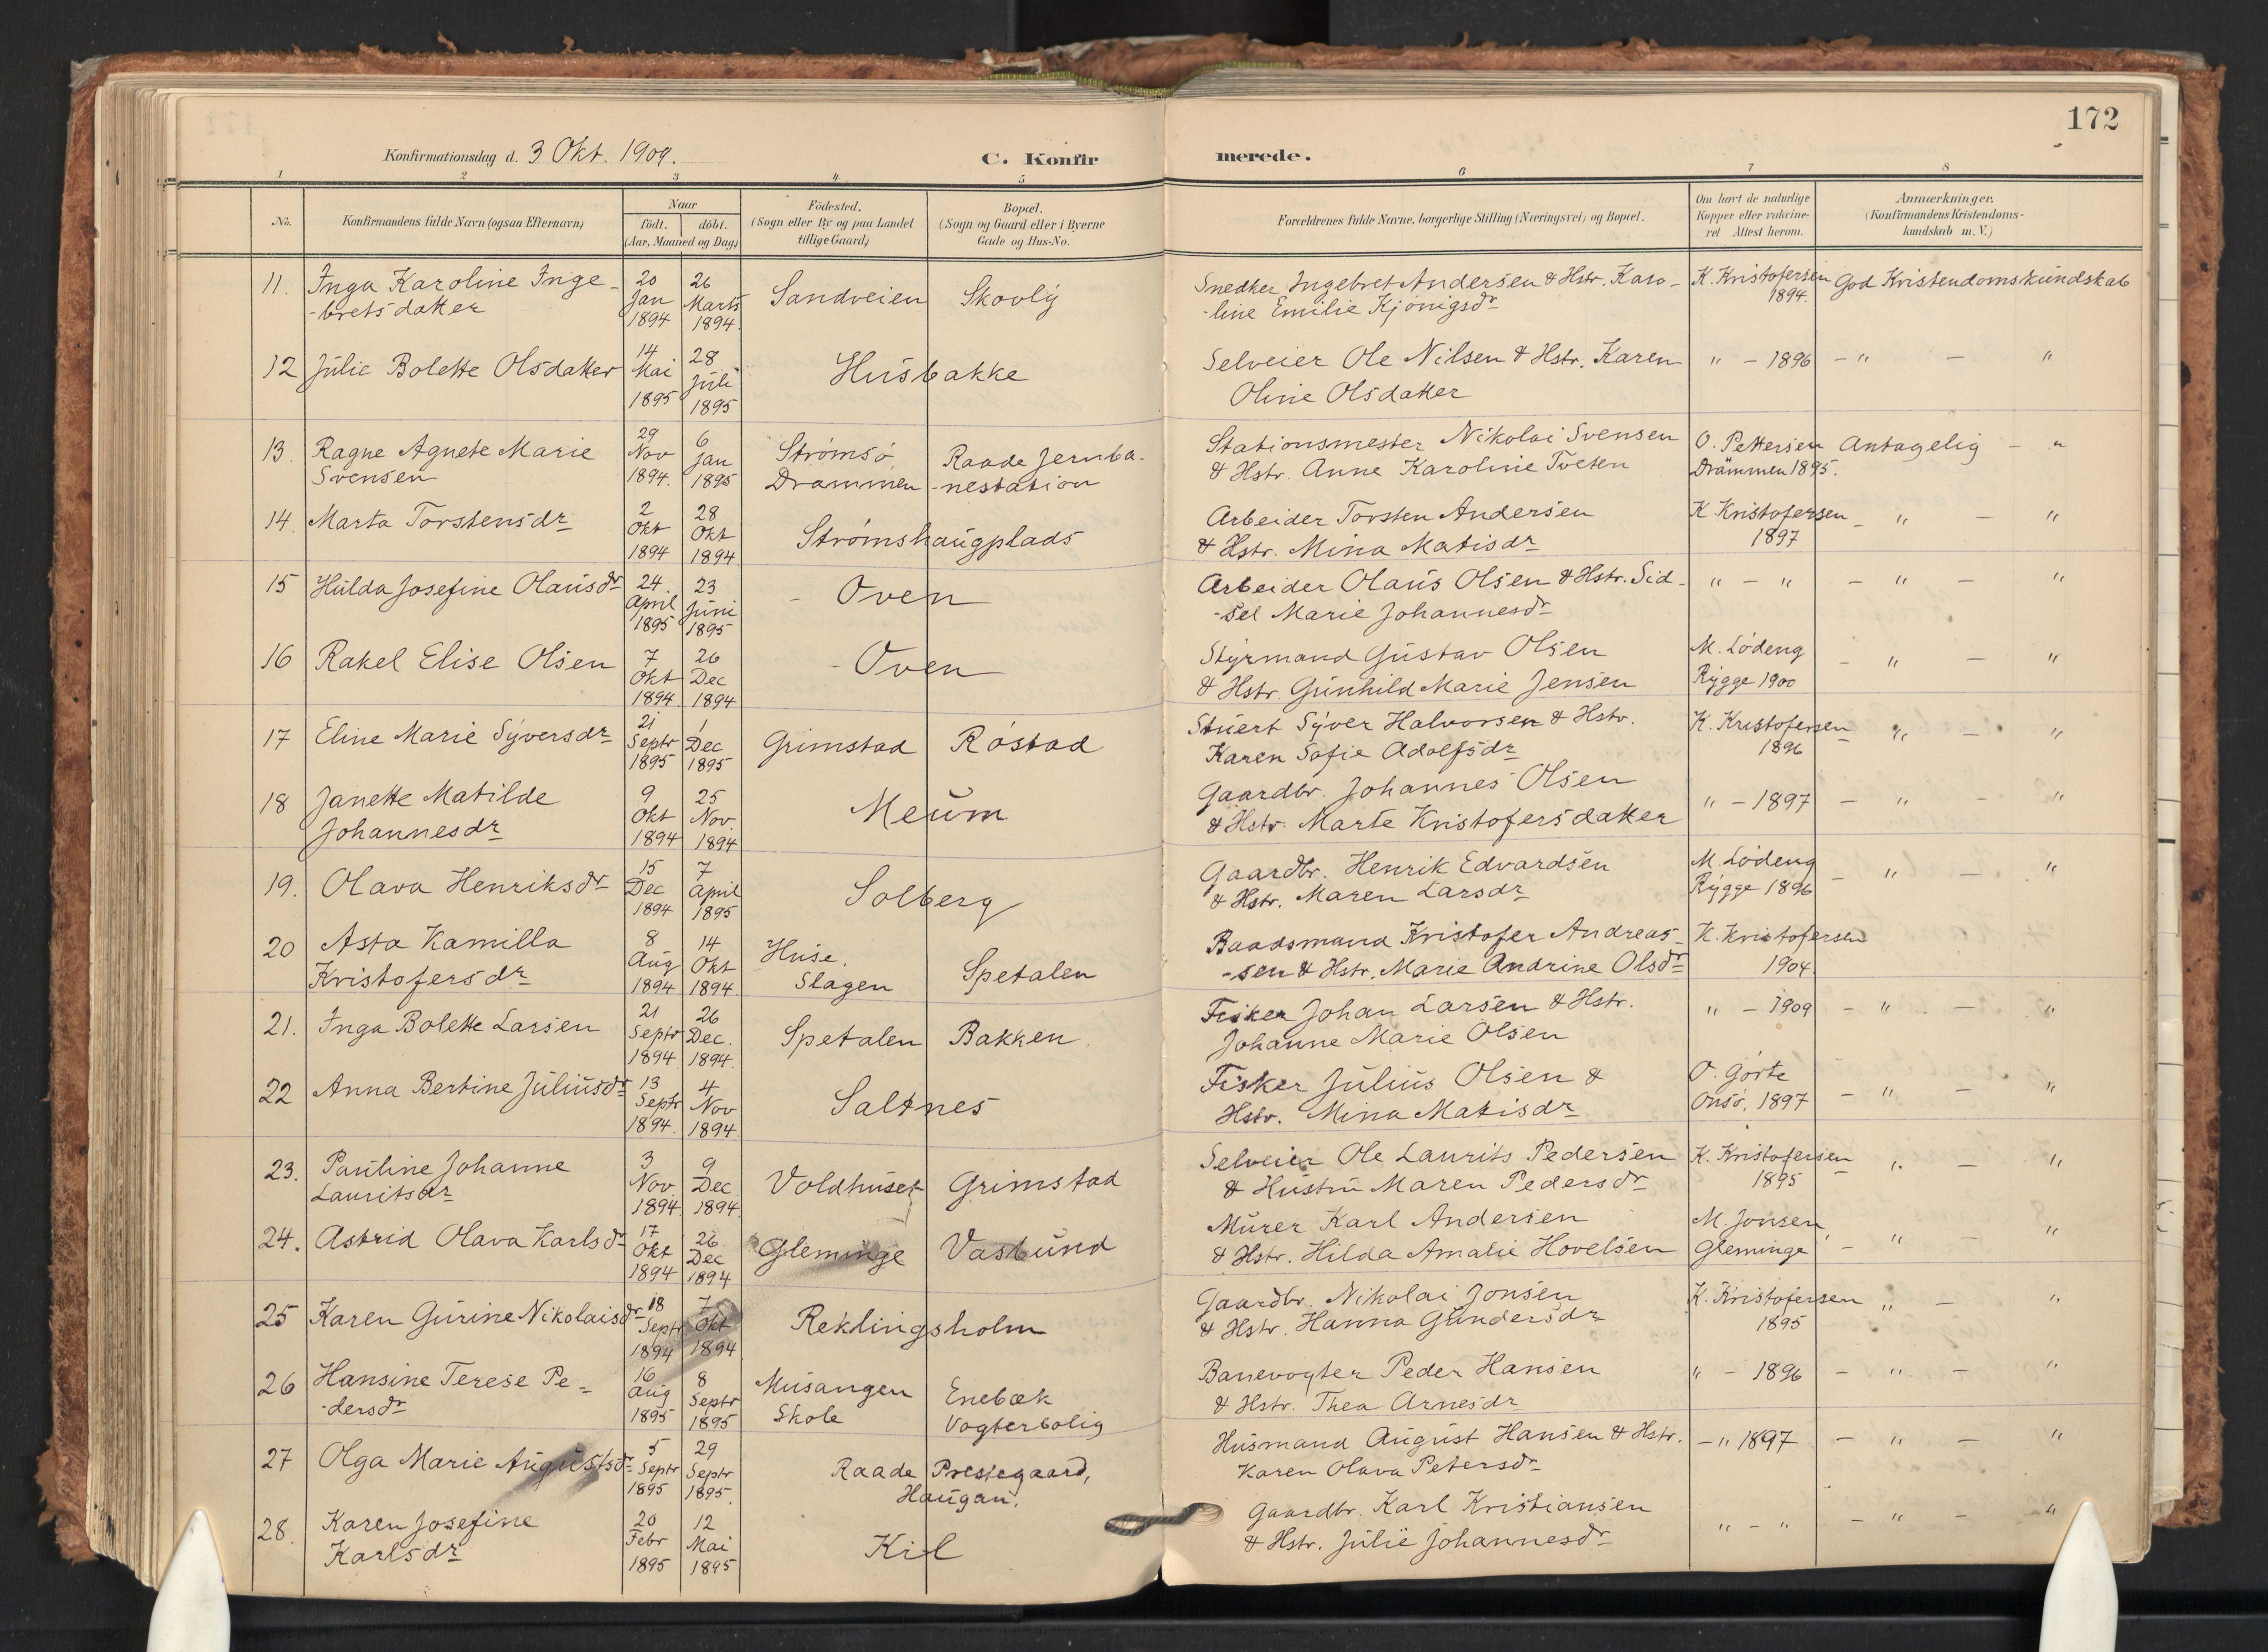 172
Konfirmationsdag d. 3 Okt. 1909.
C. Konfirmerede.
1 2 3 4 5 6 7 8
No.
Konfirmandens fulde Navn (ogsaa Efternavn)
Naar
født. døbt.
(Aar, Maaned og Dag)
Fødested.
(Sogn eller By og paa Landet
tillige Gaard)
Bopæl.
(Sogn og Gaard eller i Byerne
Gade og Hus-No.
Forældrenes fulde Navne, borgerlige Stilling (Næringsvei) og Bopæl.
Om havt de naturlige
Kopper eller vakcine-
ret Attest herom.
Anmærkninger.
(Konfirmandens Kristendoms-
kundskab m. V.)
11. Inga Karoline Inge-
-bretsdatter
20 Jan 1894
26 Marts 1894.
Sandveien
Skovly
Snedker Ingebret Andersen & Hstr. Karo-
-line Emilie Kjönigsdr
K. Kristofersen
1894.
God Kristendomskundskab
12 Julie Bolette Olsdatter
14 Mai 1895
28 Juli 1895
Husbakke
Selveier Ole Nilsen & Hstr. Karen
Oline Olsdatter
" - 1896
- " - "
13. Ragne Agnete Marie
Svensen
29 Nov 1894.
6 Jan 1895
Strømsø,
Drammen
Raade Jernba-
-nestation
Stationsmester Nikolai Svensen
& Hstr. Anne Karoline Tveten
O. Pettersen
Drammen 1895.
Antagelig - "
14. Marta Torstensdr
2 Okt 1894
28 Okt 1894
Strømshaugplads
Arbeider Torsten Andersen
& Hstr. Mina Matisdr
K Kristofersen
1897
- " - "
15 Hulda Josefine Olausdr
24. April 1895
23 Juni 1895
- Oven
Arbeider Olaus Olsen & Hstr. Sid-
-sel Marie Johannesdr
" - "
- " - "
16 Rakel Elise Olsen
7 Okt 1894.
26 Dec 1894
- Oven
Styrmand Gustav Olsen
& Hstr. Gunhild Marie Jensen
M. Lödeng
Rygge 1900
- " - "
17 Eline Marie Syversdr
21 Septr 1895
1 Dec 1895
Grimstad
Röstad
Stuert Syver Halvorsen & Hstr.
Karen Sofie Adolfsdr
K. Kristofersen
1896
- " - "
18 Janette Matilde
Johannesdr
9 Okt 1894
25 Nov. 1894
Meum
Gaardbr. Johannes Olsen
& Hstr. Marte Kristofersdatter
" - 1897
- " - "
19. Olava Henriksdr
15 Dec 1894
7 April 1895
Solberg
Gaardbr. Henrik Edvardsen
& Hstr. Maren Larsdr
M. Lödeng
Rygge 1896
- " - "
20 Asta Kamilla
Kristofersdr
8 Aug 1894
14 Okt 1894.
Huse,
Slagen
Spetalen
Baadsmand Kristofer Andreas-
-sen & Hstr. Marie Andrine Olsdr
K. Kristofersen
1904.
21. Inga Bolette Larsen
21 Septr 1894
26 Dec. 1894.
Spetalen
Bakken
Fisker Johan Larsen & Hstr.
Johanne Marie Olsen
" - 1909
- " - "
22 Anna Bertine Juliusdr
13 Septr 1894.
4 Nov 1894.
Saltnes
Fisker Julius Olsen &
Hstr. Mina Matisdr
O. Gjörte
Onsö, 1897
- " - "
23. Pauline Johanne
Lauritsdr
3 Nov. 1894.
9 Dec 1894.
Voldhuset
Grimstad
Selveier Ole Laurits Pedersen
& Hustru Maren Pedersdr
K. Kristofersen
1895
" - "
24. Astrid Olava Karlsdr
17 Okt 1894
26 Dec 1894
Gleminge
Vasbund
Murer Karl Andersen
& Hstr. Hilda Amalie Hovelsen
M. Jonsen,
Gleminge
- " - "
25 Karen Gurine Nikolaisdr
18 Septr 1894
7 Okt 1894
Reklingsholm
Gaardbr. Nikolai Jonsen
& Hstr. Hanna Gundersdr
K. Kristofersen
1895
" - "
26 Hansine Terese Pe-
-dersdr
16 Aug 1895
8 Septr 1895
Musangen
Skole
Enebæk
Vogterbolig
Banevogter Peder Hansen
& Hstr. Thea Arnesdr
" - 1896
- " - "
27 Olga Marie Augustsdr
5 Septr 1895
29 Septr 1895.
Raade Prestegaard,
Haugan.
Husmand August Hansen & Hstr.
Karen Olava Petersdr
- " 1897
- " - "
28. Karen Josefine
Karlsdr
20 Febr 1895
12 Mai 1895
Kil
Gaardbr. Karl Kristiansen
& Hstr. Julie Johannesdr
" - "
- " - "